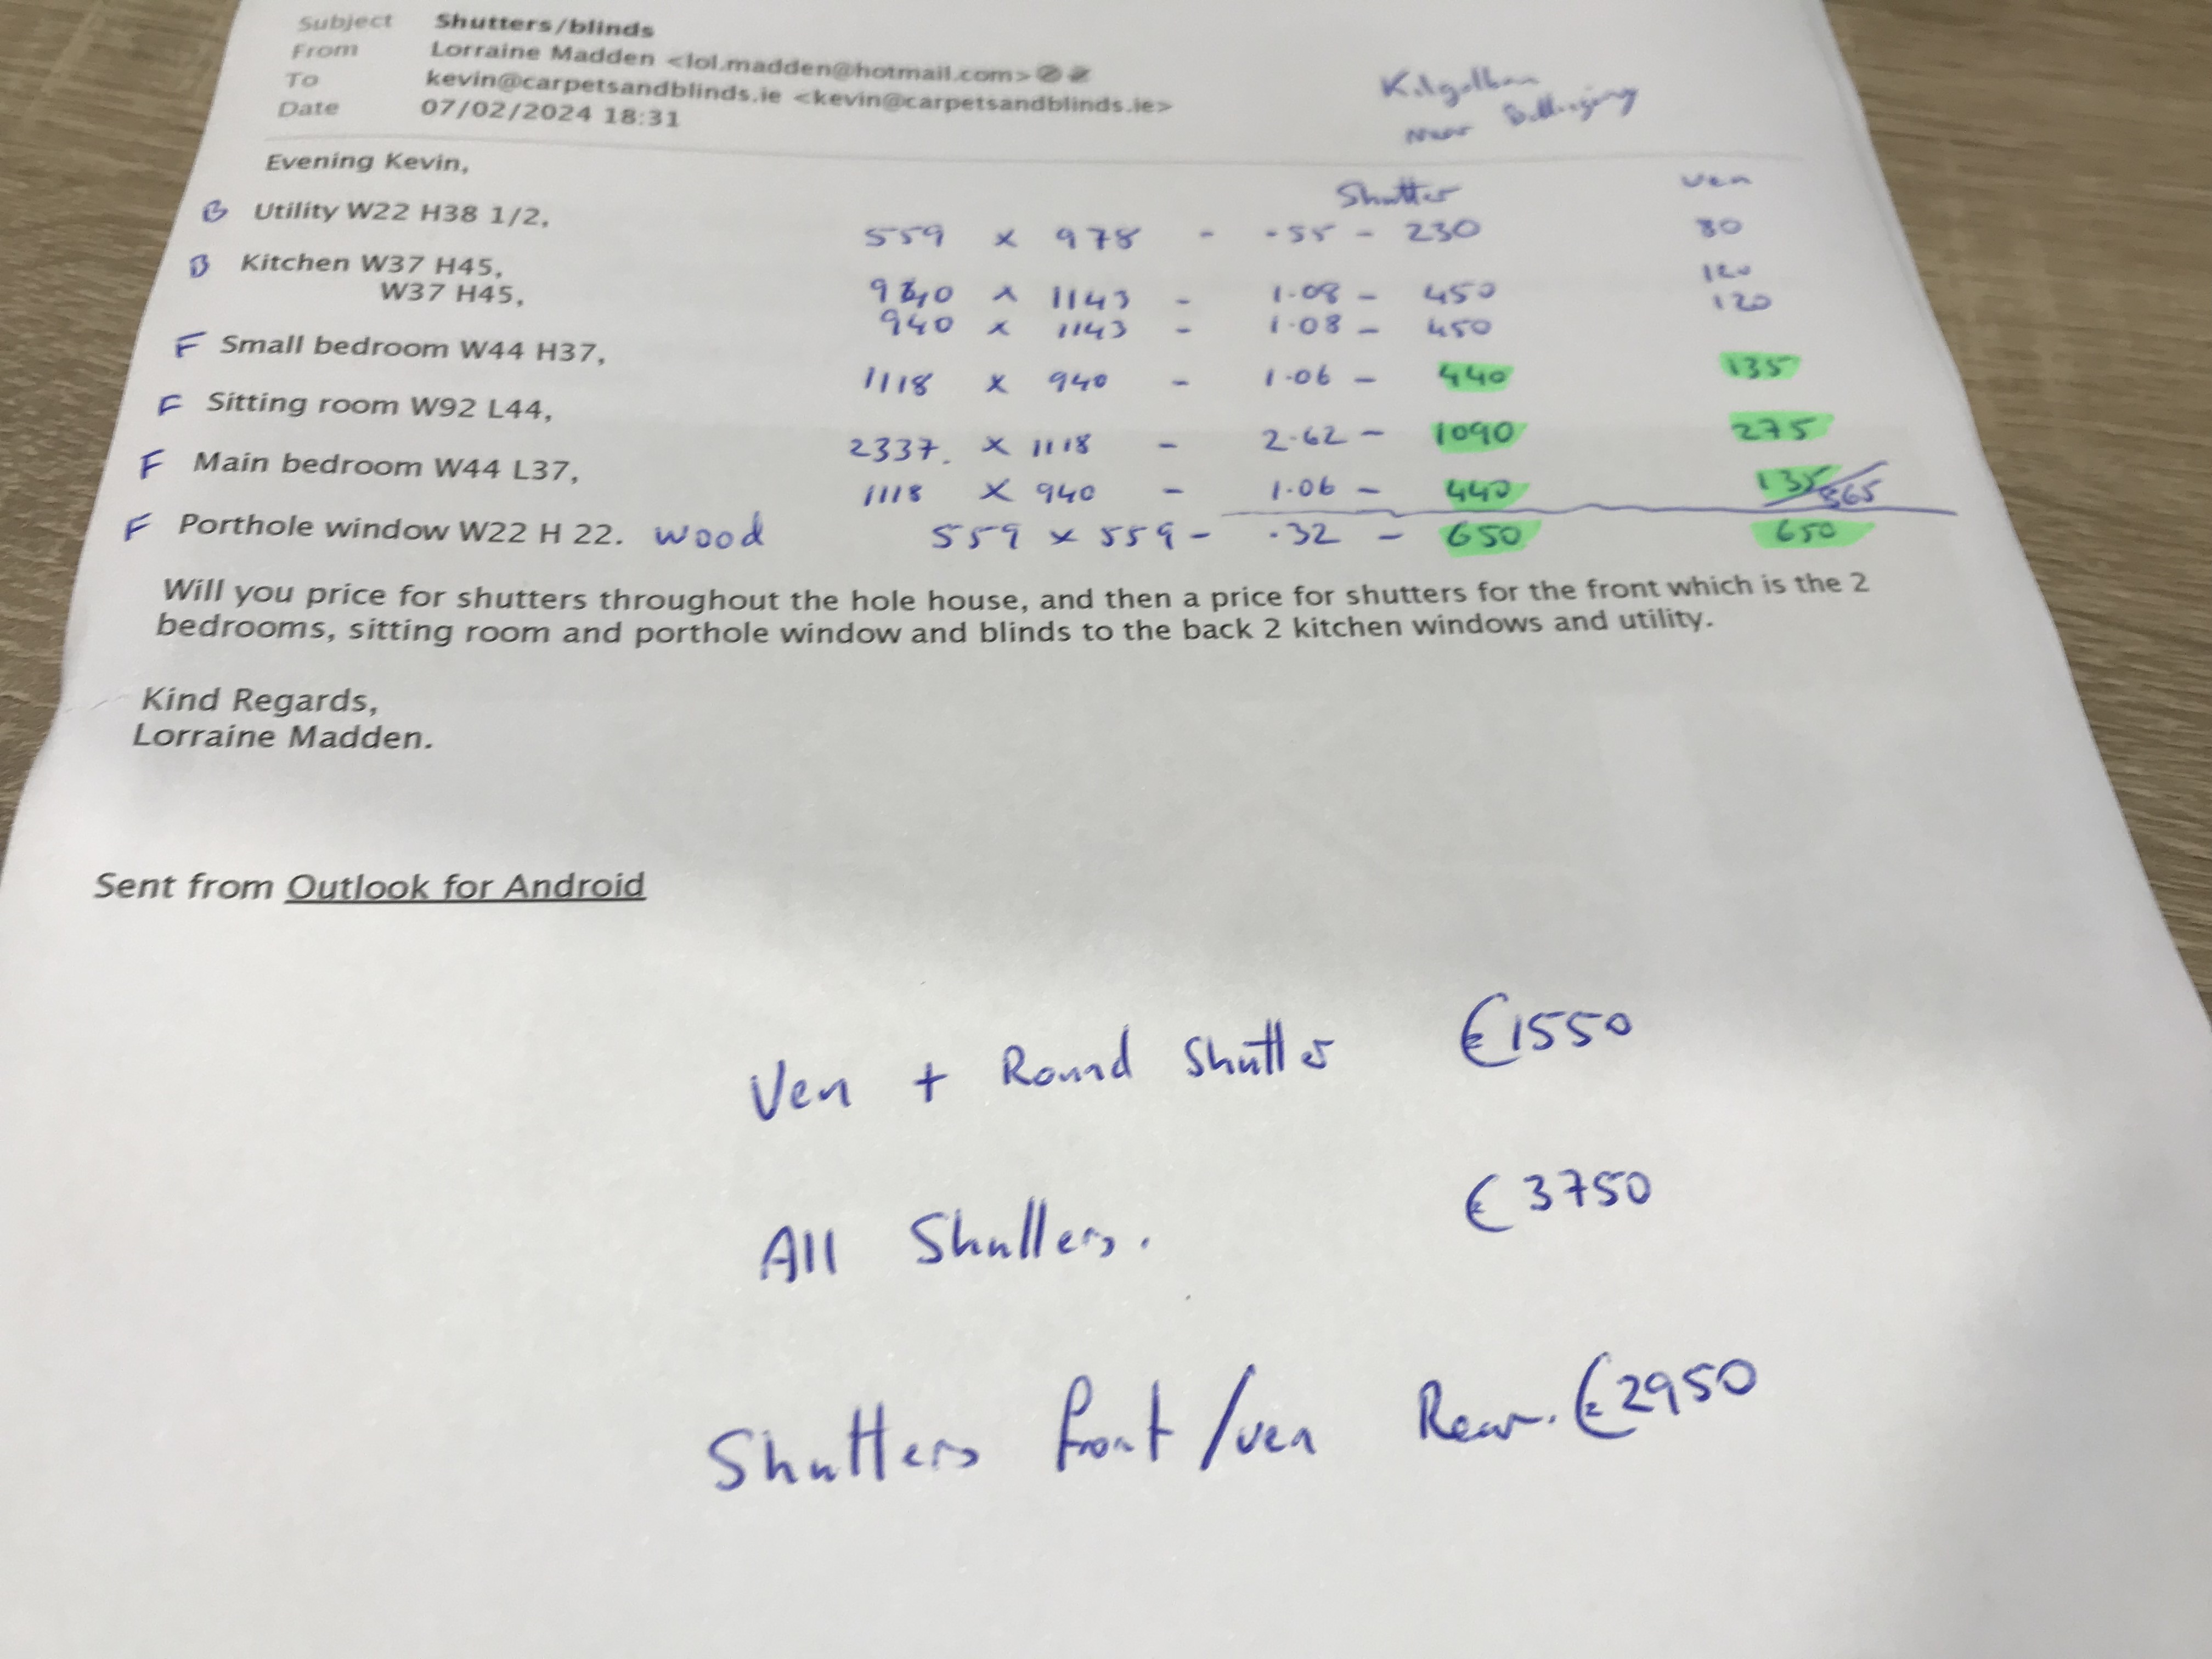 Subject Shutters/blinds
From Lorraine Madden <lol.madden@hotmail.com>
To kevin@carpetsandblinds.ie <kevin@carpetsandblinds.ie>
Date 07/02/2024 18:31
Near
Evening Kevin,
Shutter ven
B Utility W22 H38 1/2, 559 x 978 - .55 - 230 80
B Kitchen W37 H45, 940 x 1143 - 1.08 - 450 120
W37 H45, 940 x 1143 - 1.08 - 450 120
F Small bedroom W44 H37, 1118 x 940 - 1.06 - 440 135
F Sitting room W92 L44, 2337. x 1118 - 2.62 - 1090 275
F Main bedroom W44 L37, 1118 x 940 - 1.06 - 440 135 865
F Porthole window W22 H 22. wood 559 x 559 - .32 - 650 650
Will you price for shutters throughout the hole house, and then a price for shutters for the front which is the 2
bedrooms, sitting room and porthole window and blinds to the back 2 kitchen windows and utility.
Kind Regards,
Lorraine Madden.
Sent from Outlook for Android
Ven + Round Shutter €1550
All Shutters. €3750
Shutters front/ven Rear. €2950